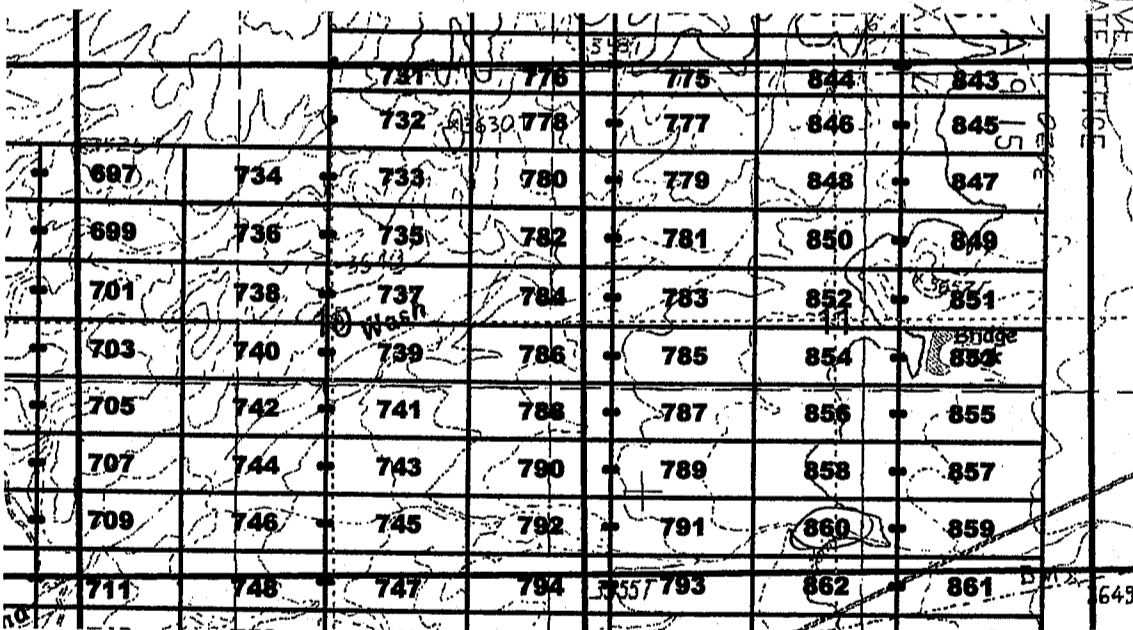 3481
731 776 775 844 843
732 3630 778 777 846 845
697 734 733 780 779 848 847
699 736 735 782 781 850 849
701 738 737 784 783 852 851
Wash
703 740 739 786 785 854 853
Bridge
705 742 741 788 787 856 855
707 744 743 790 789 858 857
709 746 745 792 791 860 859
711 748 747 794 3555T 793 862 861